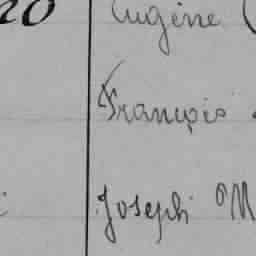 20 Eugène (
François
Joseph M